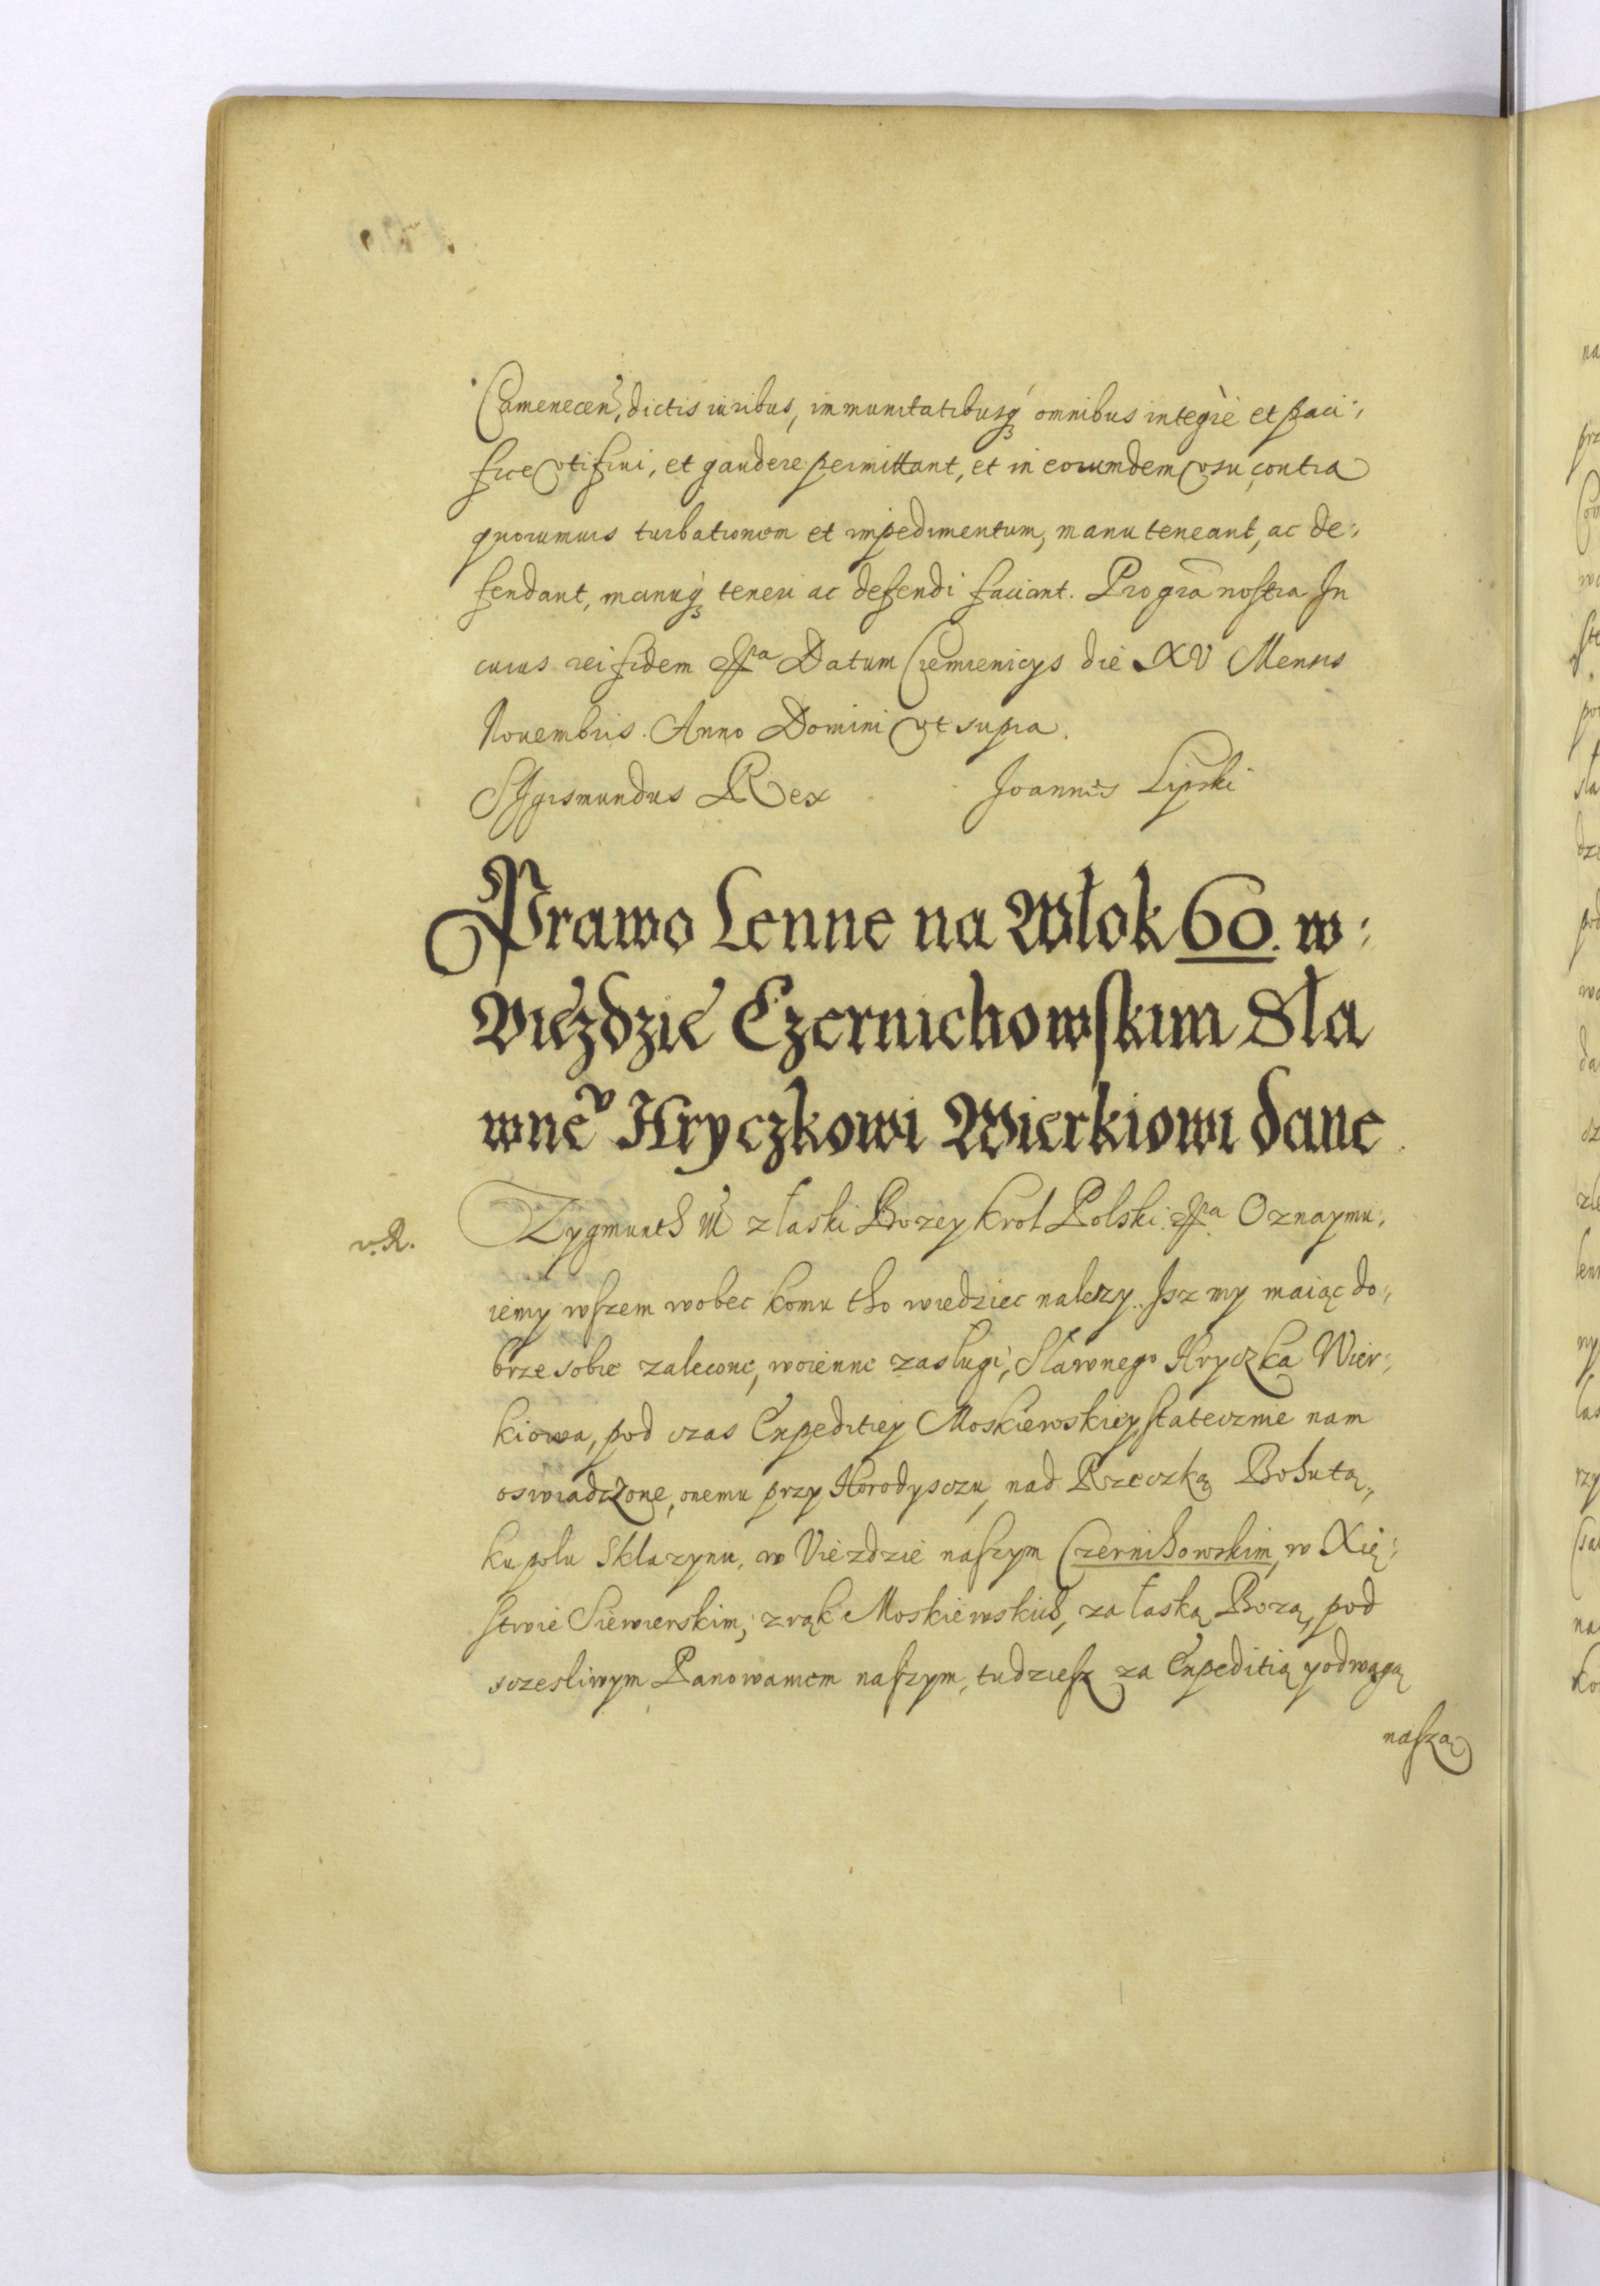 Camenecen̄, dictis iuribus, immunitatibusq́ omnibus integrè et paci:
fice vti frui, et gaudere permittant, et in eorumdem vsu, contra
quorumuis turbationem et impedimentum, manu teneant, ac de:
fendant, manuq́ teneri ac defendi faciant. Pro gra͠ nostra In
cuius rei fidem Datum Czemienicys die XV Mensis
Nouembris. Anno Domini vt supra.
Sigismundus Rex Joannis Lipski
Prawo Lenne na Włok 60. w:
Vieździe Czernichowskim Sła
wneᵛ Hryczkowi Wierkiowi dane
v. R.
Zygmunth III z łaski Bozey Krol Polski Oznaymu:
iemy wszem wobec komu tho wiedziec nalezy. Isz my maiąc do:
brze sobie zalecone, woienne zasługi, Sławnego Hryczka Wier:
kiowa, pod czas Expeditiey Moskiewskiey, statecznie nam
oswiadczone, onemu przy Horodysczu, nad Rzeczką Bohutą,
ku polu Sklazynu, w Vieździe naszym Czernihowskim, w Xię:
stwie Siewierskim, z rąk Moskiewskich, za łaską Bozą, pod
sczesliwym Panowaniem naszym, tudziesz za Expeditią y odwagą
naszą